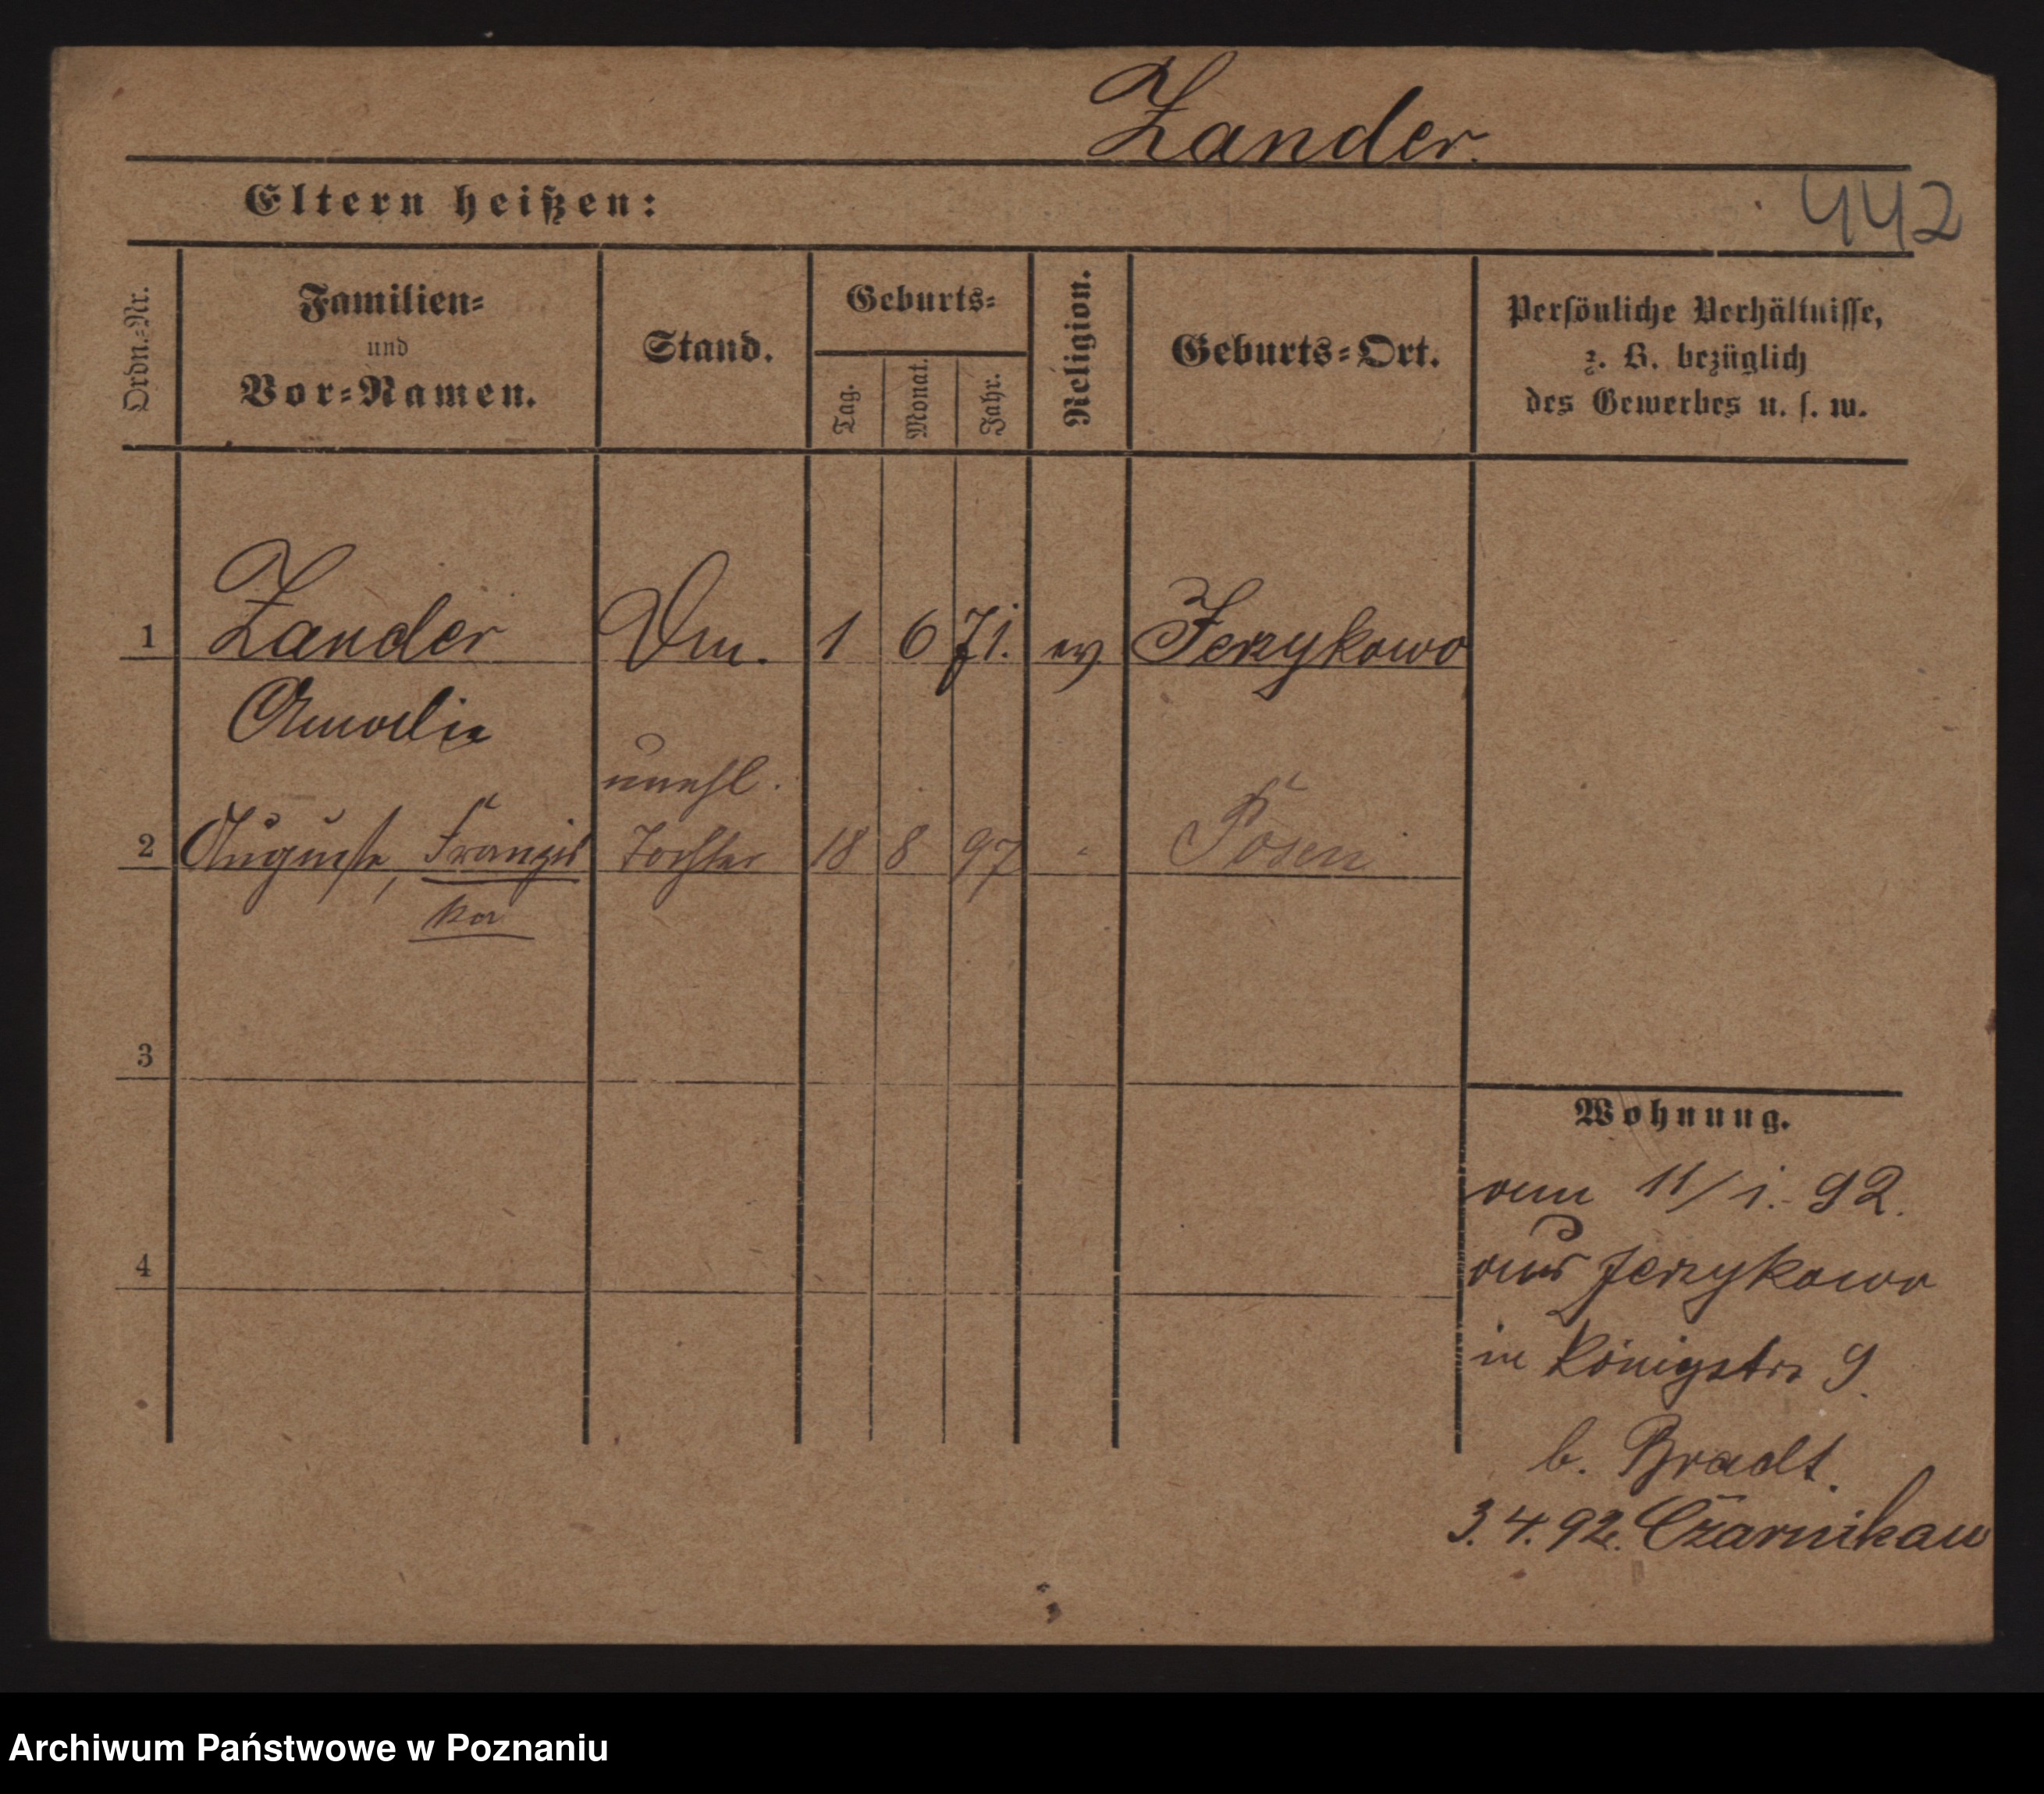 Zander.
Eltern heißen:
442
Ordn.-Nr.
Familien-
und
Vor-Namen.
Stand.
Geburts-
Tag.
Monat.
Jahr.
Religion.
Geburts-Ort.
Persönliche Verhältnisse,
z. B. bezüglich
des Gewerbes u. s. w.
1 Zander 1 6 71. ev Jerzykowo
Amalie
unehl.
2 Auguste, Franzis Tochter 18 8 97 Posen
ka
3
Wohnung.
am 11/1. 92.
4
aus Jerzykowo
in Königstr 9.
b. Bradt.
3.4.92. Czarnikau
Archiwum Państwowe w Poznaniu